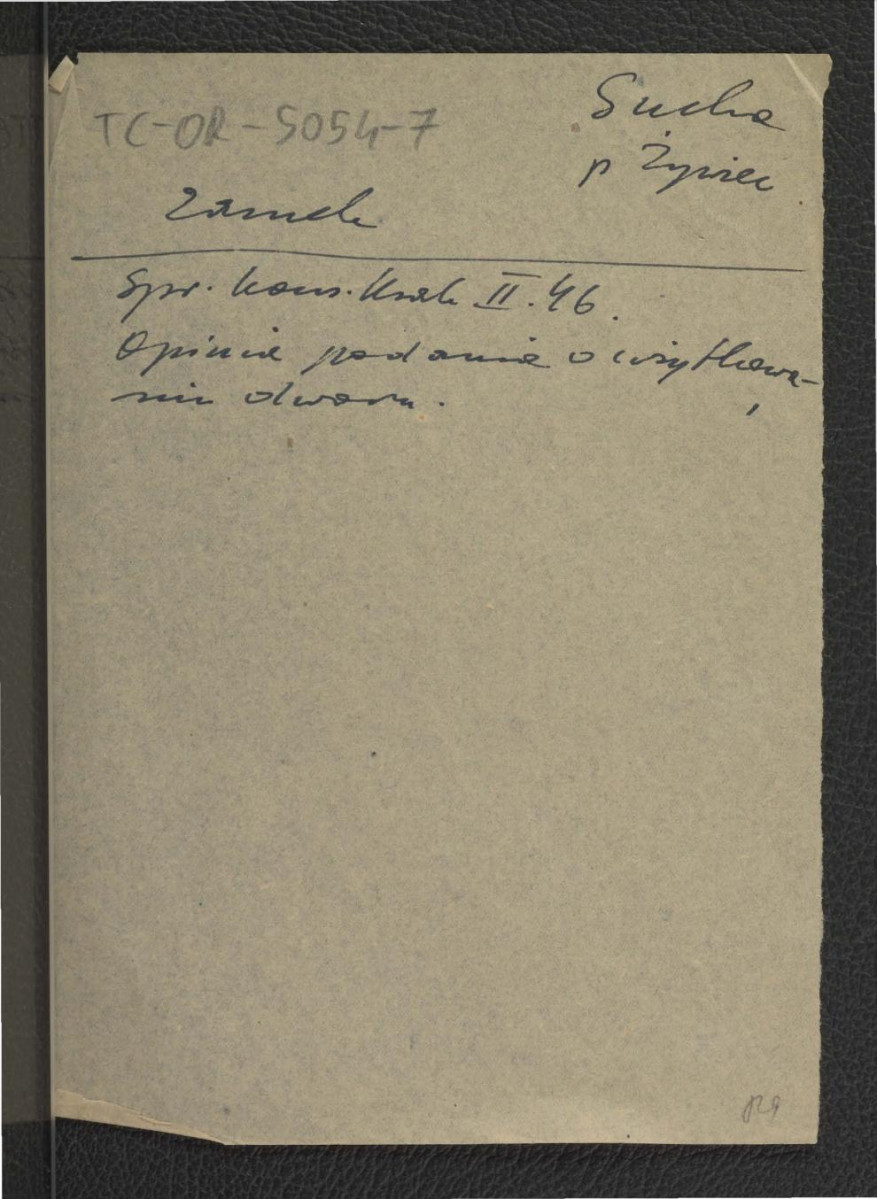 TC-OR-5054-7
Sucha
p Żywiec
Zamek
Spr. kons. Krak II. 46.
Opinia podania o użytkowa-
niu dworu.